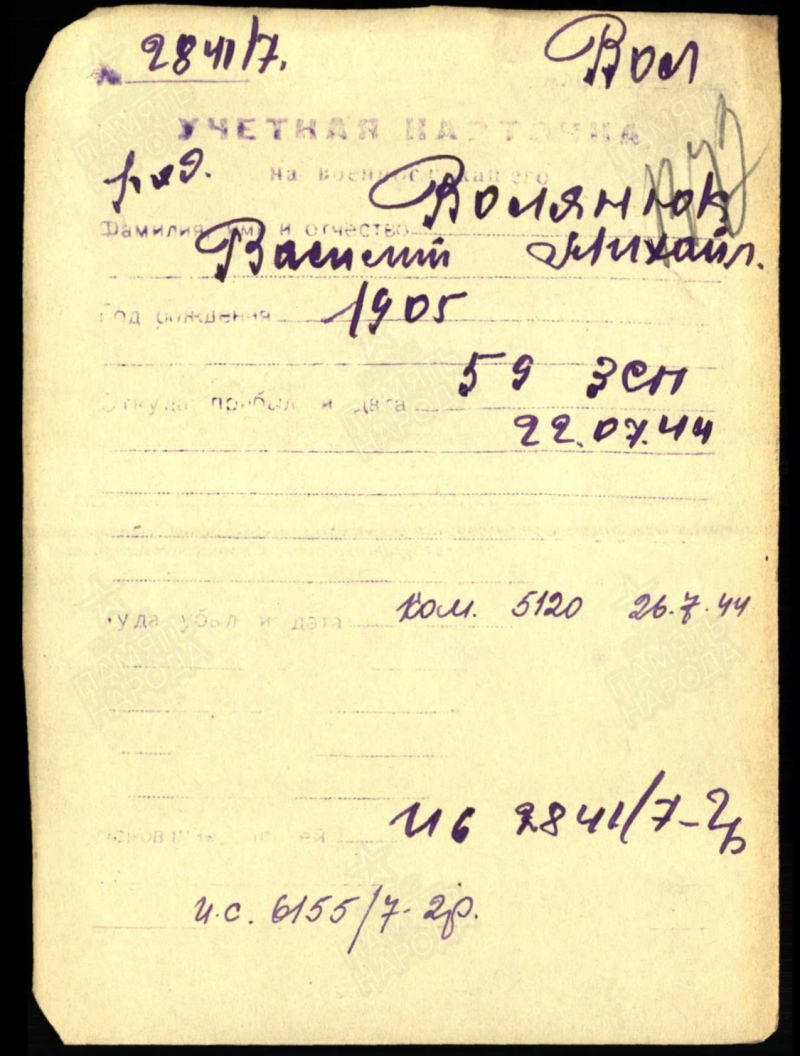 № 2841/7. Вол
УЧЕТНАЯ КАРТОЧКА
ряд. на военнослужащего
Фамилия, имя и отчество Волянюк
Василий Михайл.
Год рождения 1905
59 ЗСП
Откуда прибыл и дата
22.07.44
Куда убыл и дата Ком. 5120 26.7.44
2841/7-2р
и.с. 6155/7-2р.
ПАМЯТЬ НАРОДА